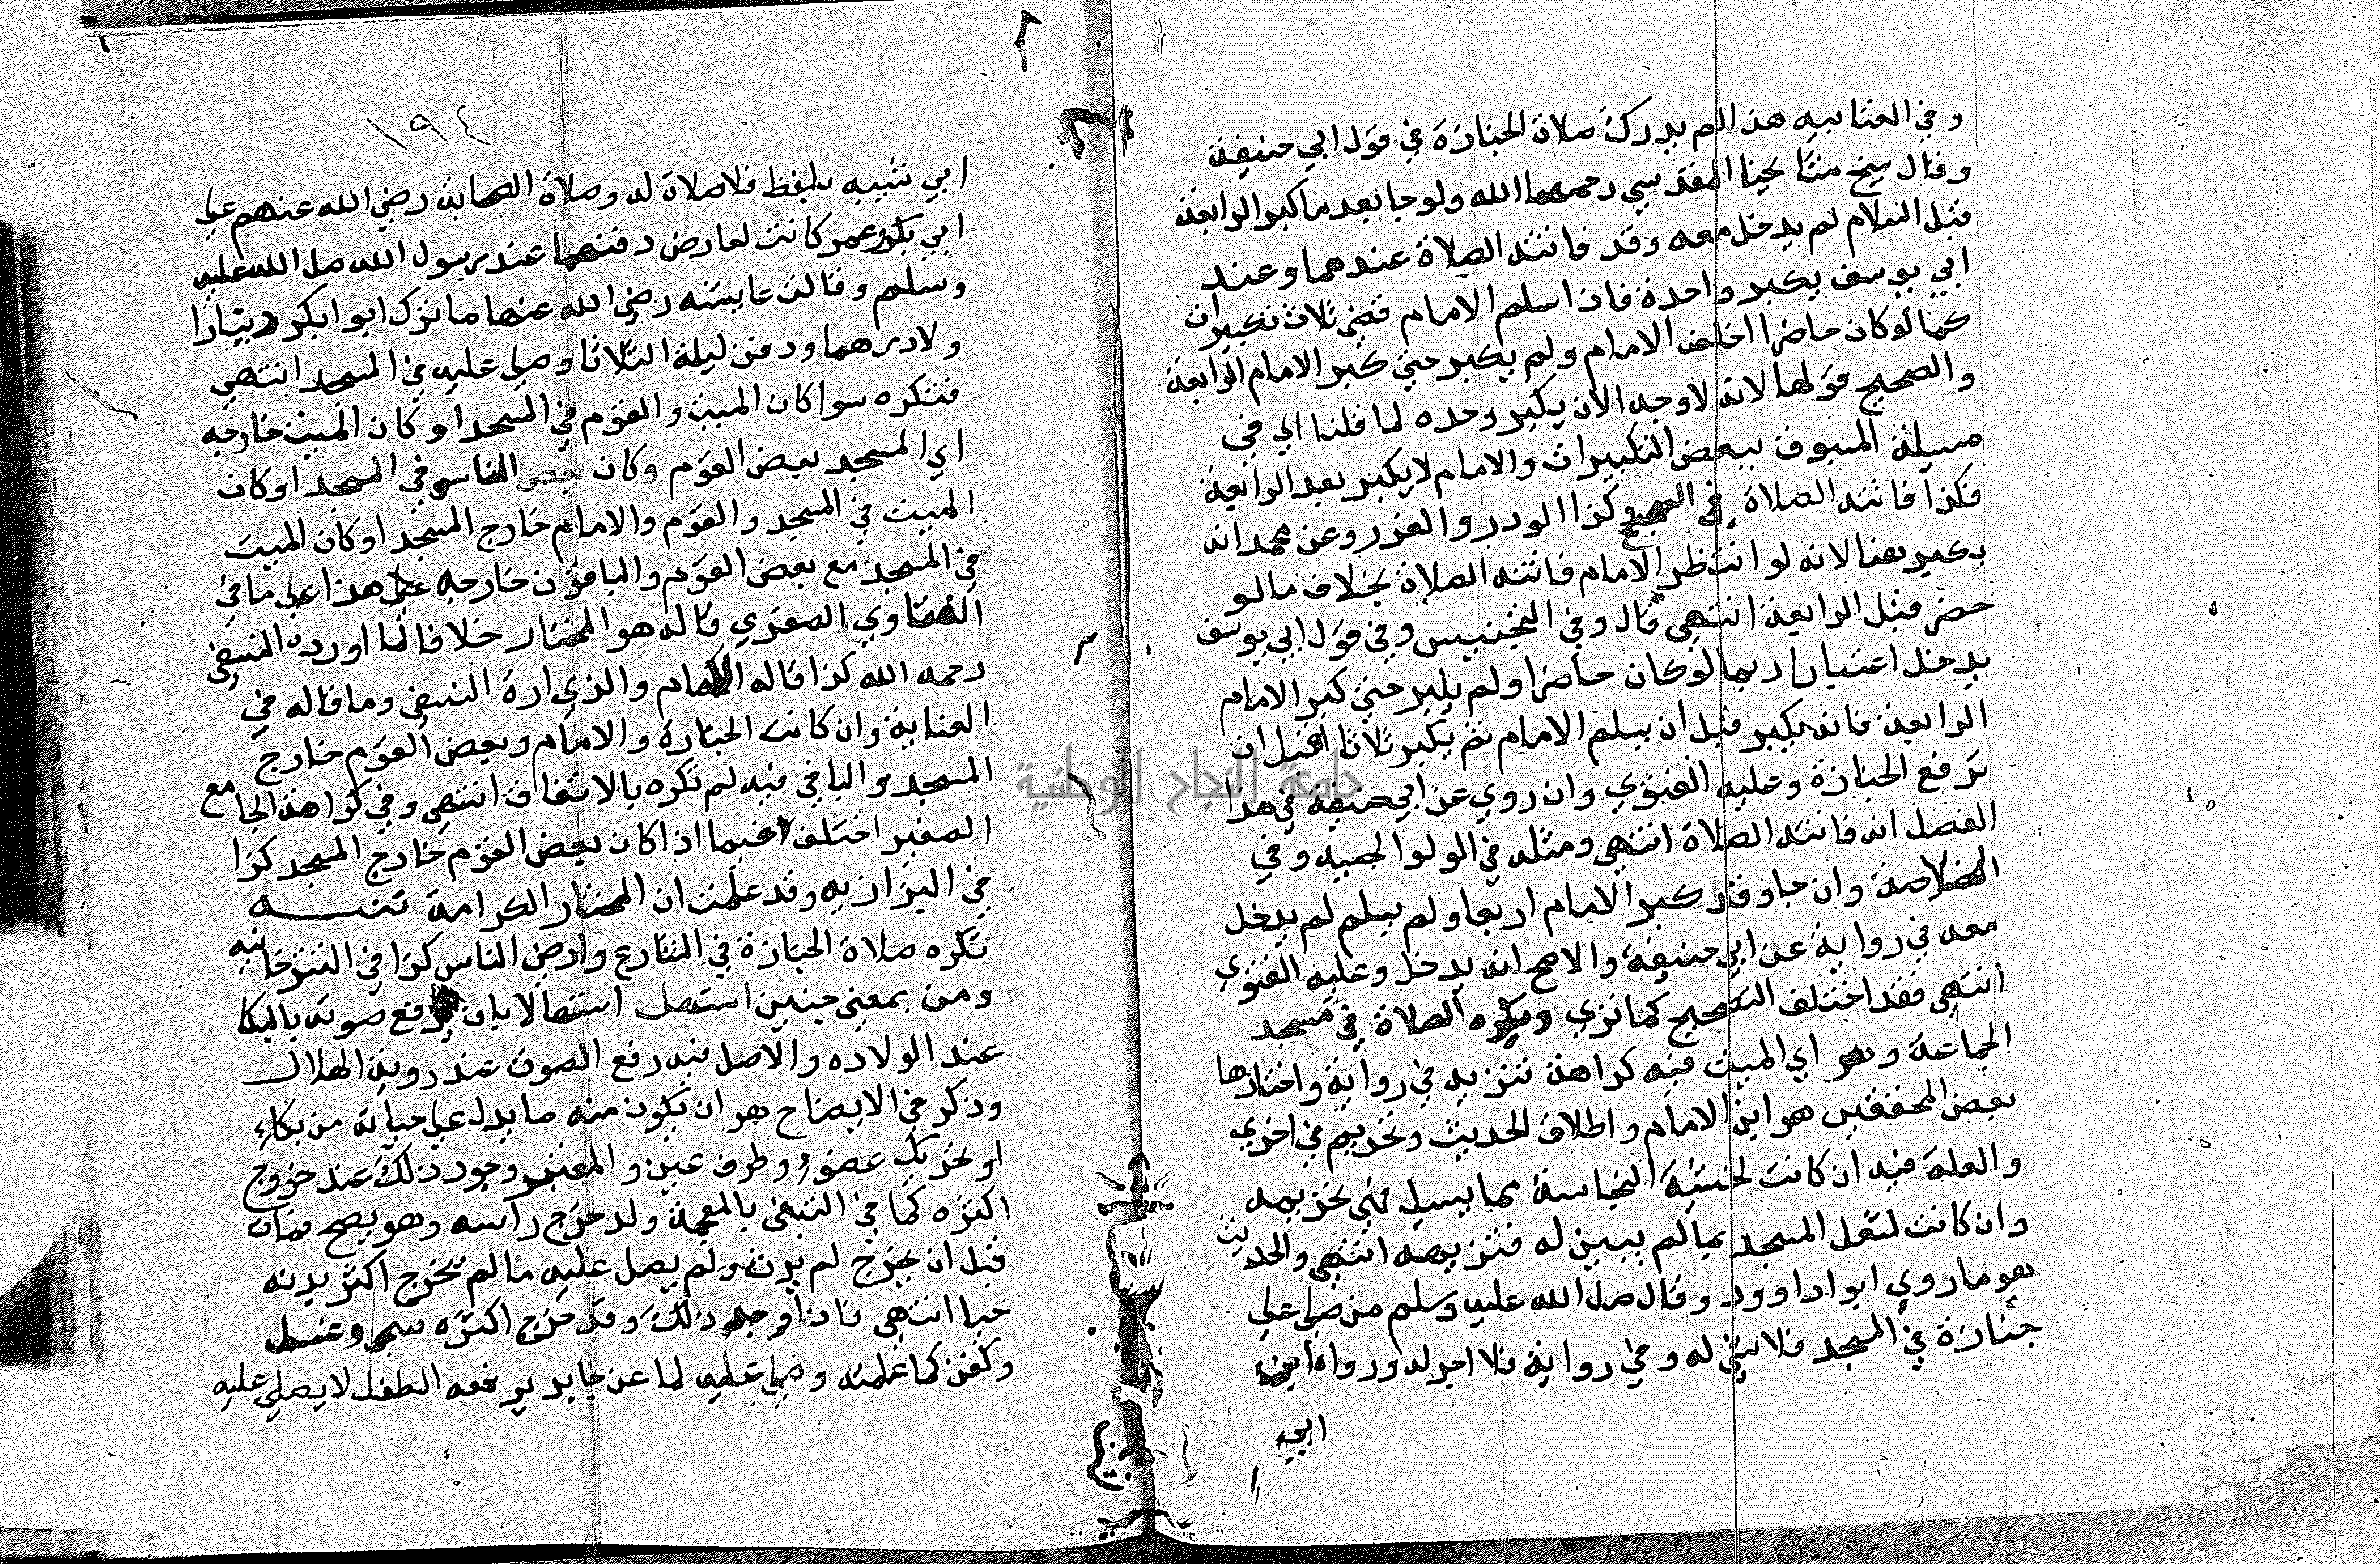 وفي العتابيه هذا لم يدرك صلاة الجنازة في قول ابي حنيفة
وقال شيخ مشايخنا المقدسي رحمهما الله ولو جا بعد ما كبر الرابعة
قبل السلام لم يدخل معه وقد فاتته الصلاة عندهما وعند
ابي يوسف يكبر واحدة فاذا سلم الامام قضى ثلاث تكبيرات
كما لو كان حاضرا خلف الامام ولم يكبر حتى كبر الامام الرابعة
والصحيح قولهما لانه لا وجه الان يكبر وحده لما قلنا اي في
مسيلة المسبوق ببعض التكبيرات والامام لا يكبر بعد الرابعة
فكذا فاتته الصلاة في الصحيح وكذا الدرر والغرر وعن محمد انه
يكبر هنا لانه لو انتظر الامام فاتته الصلاة بخلاف ما لو
حضر قبل الرابعة انتهى قال وفي التجنيس وفي قول ابي يوسف
يدخل اعتبارا بما لو كان حاضرا ولم يكبر حتى كبر الامام
الرابعة فانه يكبر قبل ان يسلم الامام ثم يكبر ثلاثا قبل ان
ترفع الجنازة وعليه الفتوي وان روي عن ابي حنيفة في هذا
الفصل انه فاتته الصلاة انتهى ومثله في الولوالجيه وفي
الخلاصة وان جا وقد كبر الامام اربعا ولم يسلم لم يدخل
معه في رواية عن ابي حنيفة والاصح انه يدخل وعليه الفتوي
انتهى فقد اختلف التصحيح كما تري ويكره الصلاة في مسجد
الجماعة وهو اي الميت فيه كراهة تنزيه في رواية واختارها
بعض المحققين هو ابن الامام واطلاق الحديث وتحريم في اخري
والعلة فيه ان كانت لخشية النجاسة مما يسيل فهي تحريمه
وان كانت لشغل المسجد بما لم يبين له فتنزيهه انتهى والحديث
هو ما روي ابوا داوود وقال صلى الله عليه وسلم من صلى على
جنازة في المسجد فلا شئ له وفي رواية فلا اجر له ورواه ابن
ابي
١٩٤
ابي شيبه بلفظ فلا صلاة له وصلاة الصحابة رضي الله عنهم على
ابي بكر وعمر كانت لعارض دفنهما عند رسول الله صلى الله عليه
وسلم وقالت عايشه رضي الله عنها ما ترك ابوا بكر دينارا
ولا درهما ودفن ليلة الثلاثا وصلي عليه في المسجد انتهى
فتكره سوا كان الميت والقوم في المسجد او كان الميت خارجه
اي المسجد بعض القوم وكان بعض الناس في المسجد او كان
الميت في المسجد والقوم والامام خارج المسجد او كان الميت
في المسجد مع بعض القوم والباقون خارجه على هذا على ما في
الفتاوي الصغري قال هو المختار خلافا لما اورده النسفى
رحمه الله كذا قاله الكمام والذي اره النسفى وما قاله في
العناية وان كانت الجنازة والامام وبعض القوم خارج
المسجد والباقي فيه لم تكره بالاتفاق انتهى وفي كراهة الجامع
الصغير اختلفا فيما اذا كان بعض القوم خارج المسجد كذا
في البزازيه وقد علمت ان المختار الكراهة تنبيه
تكره صلاة الجنازة في الشارع وارض الناس كذا في التترخانيه
ومن بمعنى حينين استهل استهلالا بان يرفع صوته بالبكا
عند الولاده والاصل فيه رفع الصوت عند روية الهلال
وذكر في الايضاح هو ان يكون منه ما يدل على حياته من بكاء
او تحريك عضو او طرف عين والمعتبر وجود ذلك عند خروج
اكثره كما في النتفى بالمعجمة ولد خرج راسه وهو يصح فمات
قبل ان يخرج لم يرث ولم يصل عليه ما لم يخرج اكثر بدنه
حيا انتهى فاذا وجد ذلك وقد خرج اكثره سمي وغسل
وكفن كما علمته وصلى عليه لما عن جابر يرفعه الطفل لا يصلي عليه